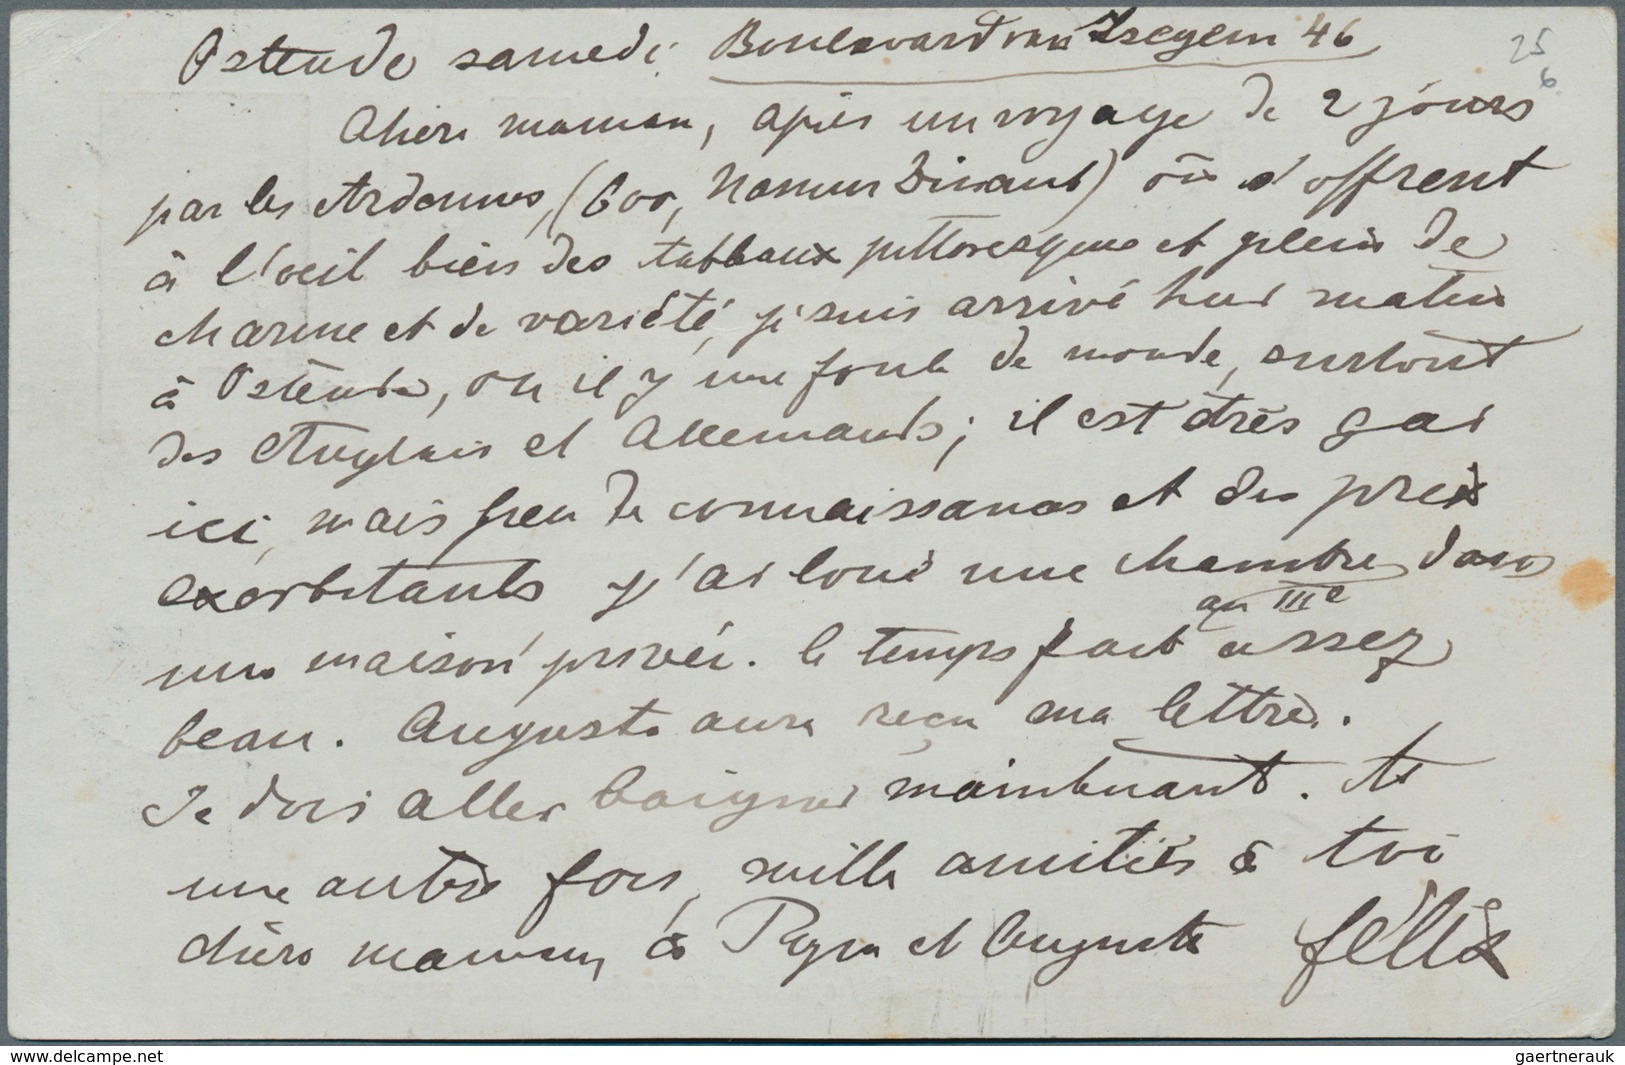 Ostende samedi Boulevard van Iseyem 46
25
6
Chère maman, après un voyage de 2 jours
par les Ardennes, (Namur Dinant) où s'offrent
à l'oeil bien des tableaux pittoresque et plein de
charme et de variété, je suis arrivé hier matin
à Ostende, ou il y une foule de monde, surtout
des Anglais et Allemands; il est très gai
ici, mais peu de connaissances et des prix
exorbitants j'ai loué une chambre dans
au IIIe
une maison privée. le temps fait assez
beau. Auguste aura reçu ma lettre.
Je dois aller baigner maintenant. 
une autre fois, mille amitiés à toi
chère maman, à et Auguste Félix
www.delcampe.net
gaertnerauk